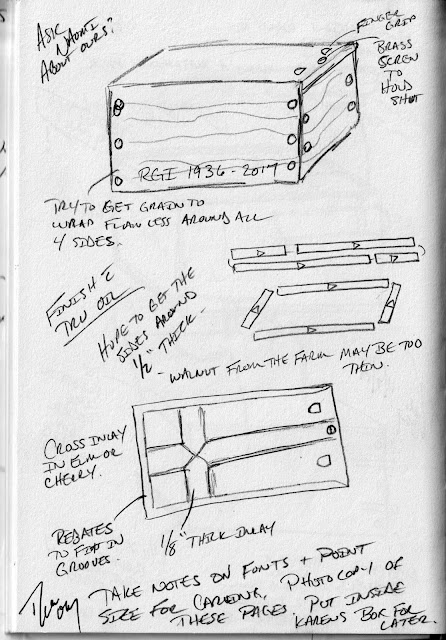 ASK
NAOMI
ABOUT OURS?
FINGER
GRIP
BRASS
SCREW
TO
HOLD
SHUT
RGI 1936-2017
TRY TO GET GRAIN TO
WRAP FLAWLESS AROUND ALL
4 SIDES.
FINISH C̄
TRU OIL
HOPE TO GET THE
SIDES AROUND
1/2" THICK -
- WALNUT FROM THE FARM MAY BE TOO
THIN.
CROSS INLAY
IN ELM OR
CHERRY.
REBATES
TO FIT IN
GROOVES.
1/8" THICK INLAY
TAKE NOTES ON FONTS + POINT
SIZE FOR CARVING. PHOTOCOPY OF
THESE PAGES. PUT INSIDE
KAREN'S BOX FOR
LATER.